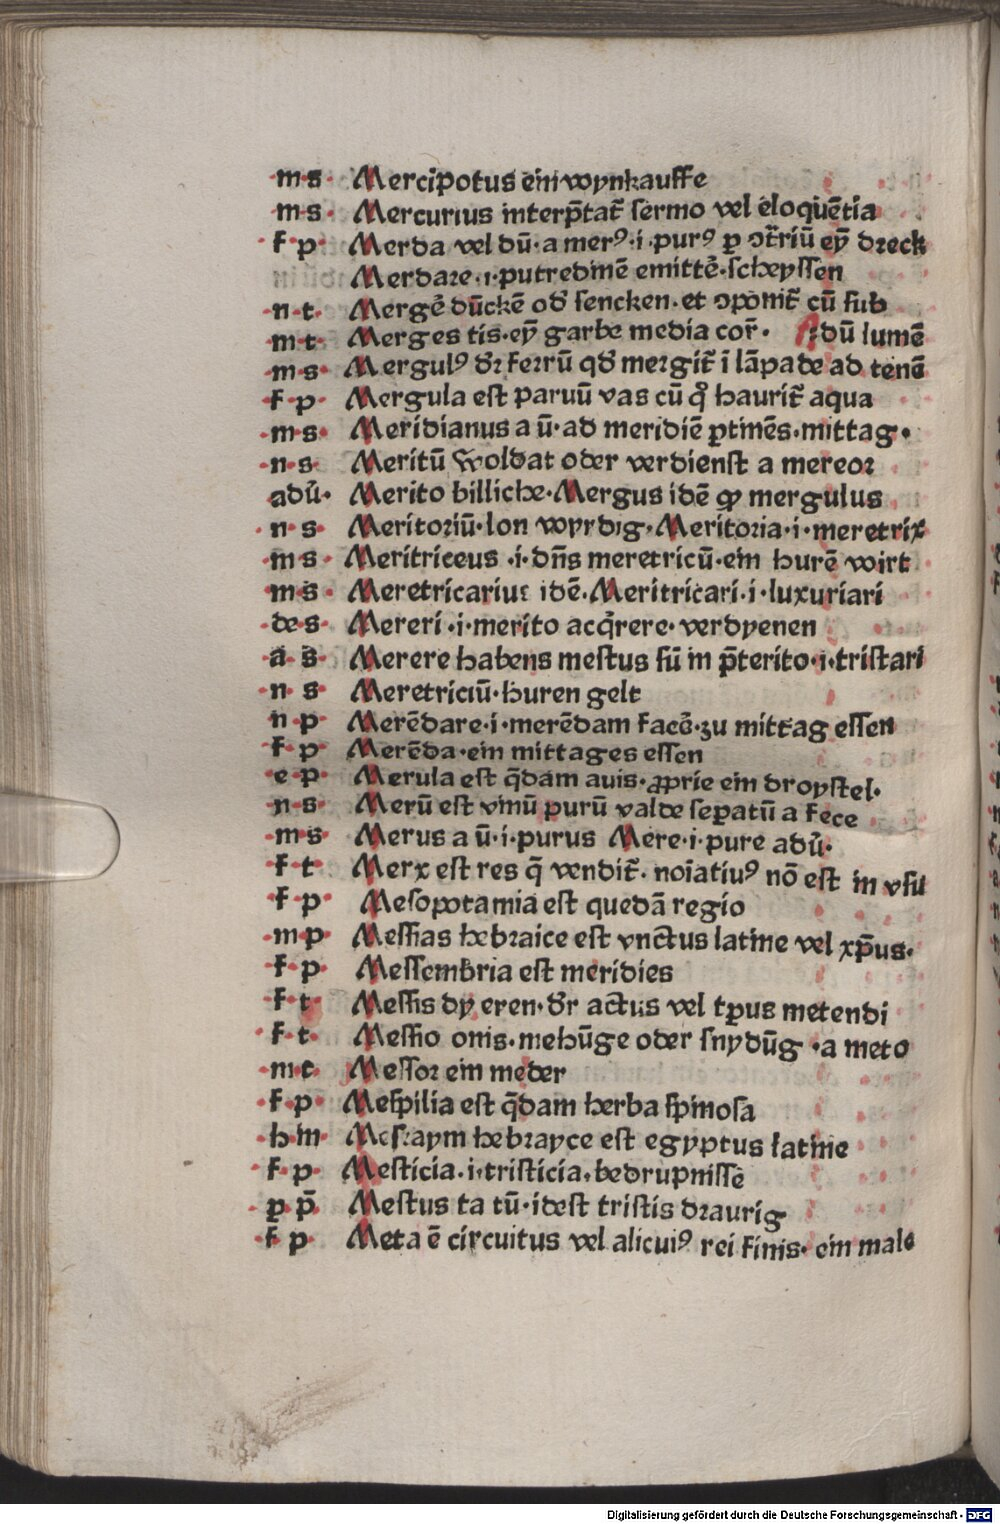 m·s· Mercipotus ein wynkauffe
m·s· Mercurius interp̄tat᷑ sermo vel eloquētia
f·p· Merda vel dū·a merꝰ·i·purꝰ p ꝯt᷑riū eȳ dreck
Merdare·i·putredinē emittē·scheyssen
n·t· Mergē dūckē od᷑ sencken·et ꝯponit᷑ cū sub
m·t· Merges tis·eȳ garbe media cor᷑· dū lumē
m·s· Mergulꝰ dr̄ ferrū qd᷑ mergit᷑ ī lāpade ad tenē
f·p· Mergula est paruū vas cū q° haurit᷑ aqua
m·s· Meridianus a ū·ad meridiē ꝑtinēs·mittag·
n·s· Meritū Woldat oder verdienst a mereor
adū· Merito billiche·Mergus idē ꝙ mergulus
n·s· Meritoriū·lon wyrdig·Meritoria·i·meretrix
m·s· Meritriceus·i·dn̄s meretricū·ein hurē wirt
m·s· Meretricarius idē·Meritricari·i·luxuriari
de·s· Mereri·i·merito acq̄rere·verdyenen
a·s· Merere habens mestus sū in p̄terito·i·tristari
n·s· Meretriciū·huren gelt
n·p· Merēdare·i·merēdam facē·zu mittag essen
f·p· Merēda·ein mittages essen
e·p· Merula est q̄dam auis·ꝓprie ein droystel·
n·s· Merū est vinū purū valde sepatū a fece
m·s· Merus a ū·i·purus Mere·i·pure adū·
f·t· Merx est res q̄ vendit᷑·noīatiuꝰ nō est in vsu
f·p· Mesopotamia est quedā regio
m·p· Messias hebraice est vnctus latine vel xp̄us·
f·p· Messembria est meridies
f·t· Messis dy eren·dr̄ actus vel tꝑus metendi
f·t· Messio onis·mehūge oder snydūg·a meto
m·t· Messor ein meder
f·p· Mespilia est q̄dam herba spinosa
h·m· Mesraym hebrayce est egyptus latine
f·p· Mesticia·i·tristicia·bedrupnisse
p·p̄· Mestus ta tū·idest tristis draurig
f·p· Meta ē circuitus vel alicuiꝰ rei finis·ein male
Digitalisierung gefördert durch die Deutsche Forschungsgemeinschaft - DFG